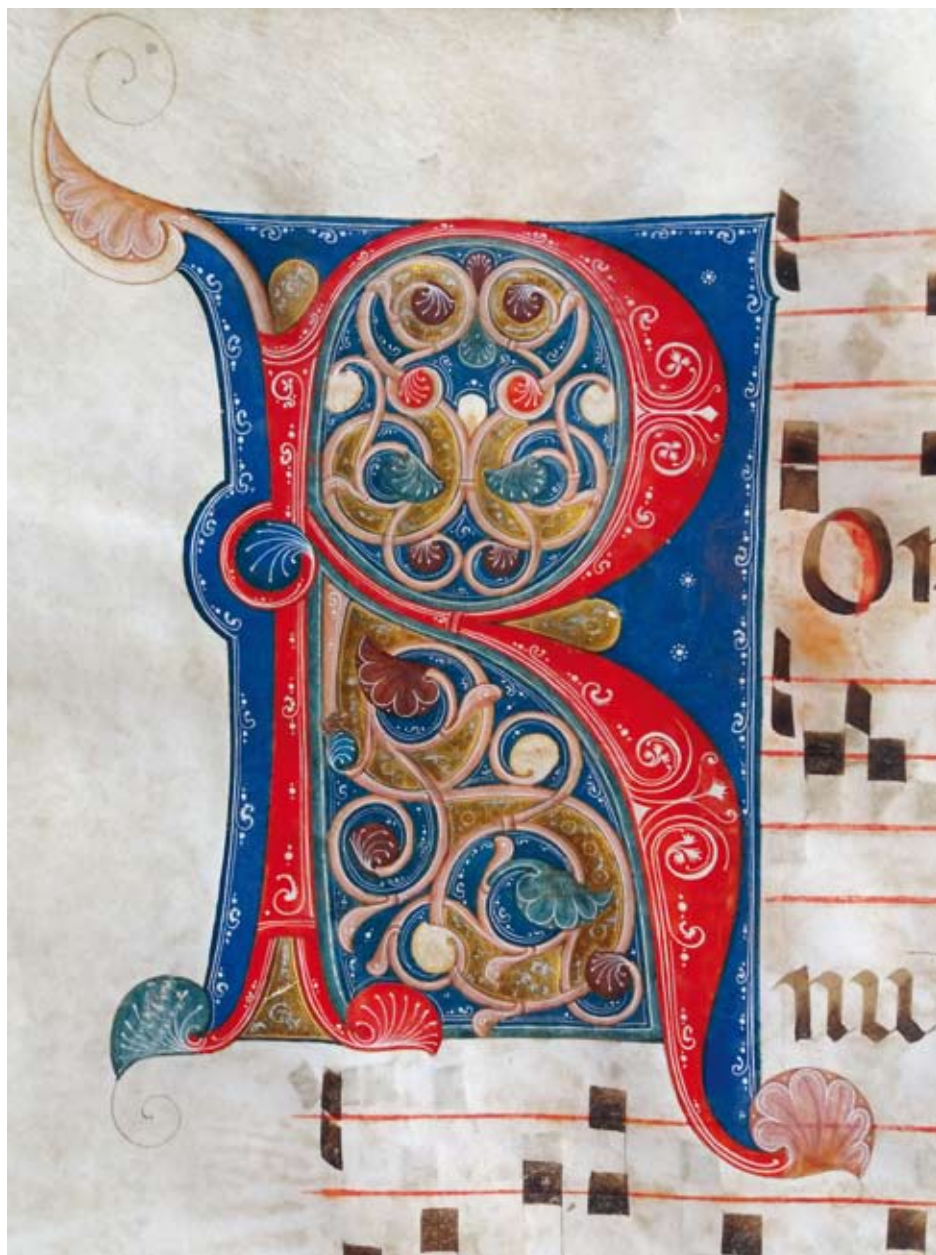 R
On
nu